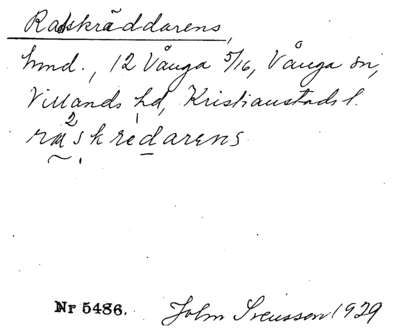 Radskräddarens,
hmd., 12 Vånga 5/16, Vånga sn,
Villands hd, Kristianstads l.
ra²skredarens
Nr 5486. John Svensson 1929